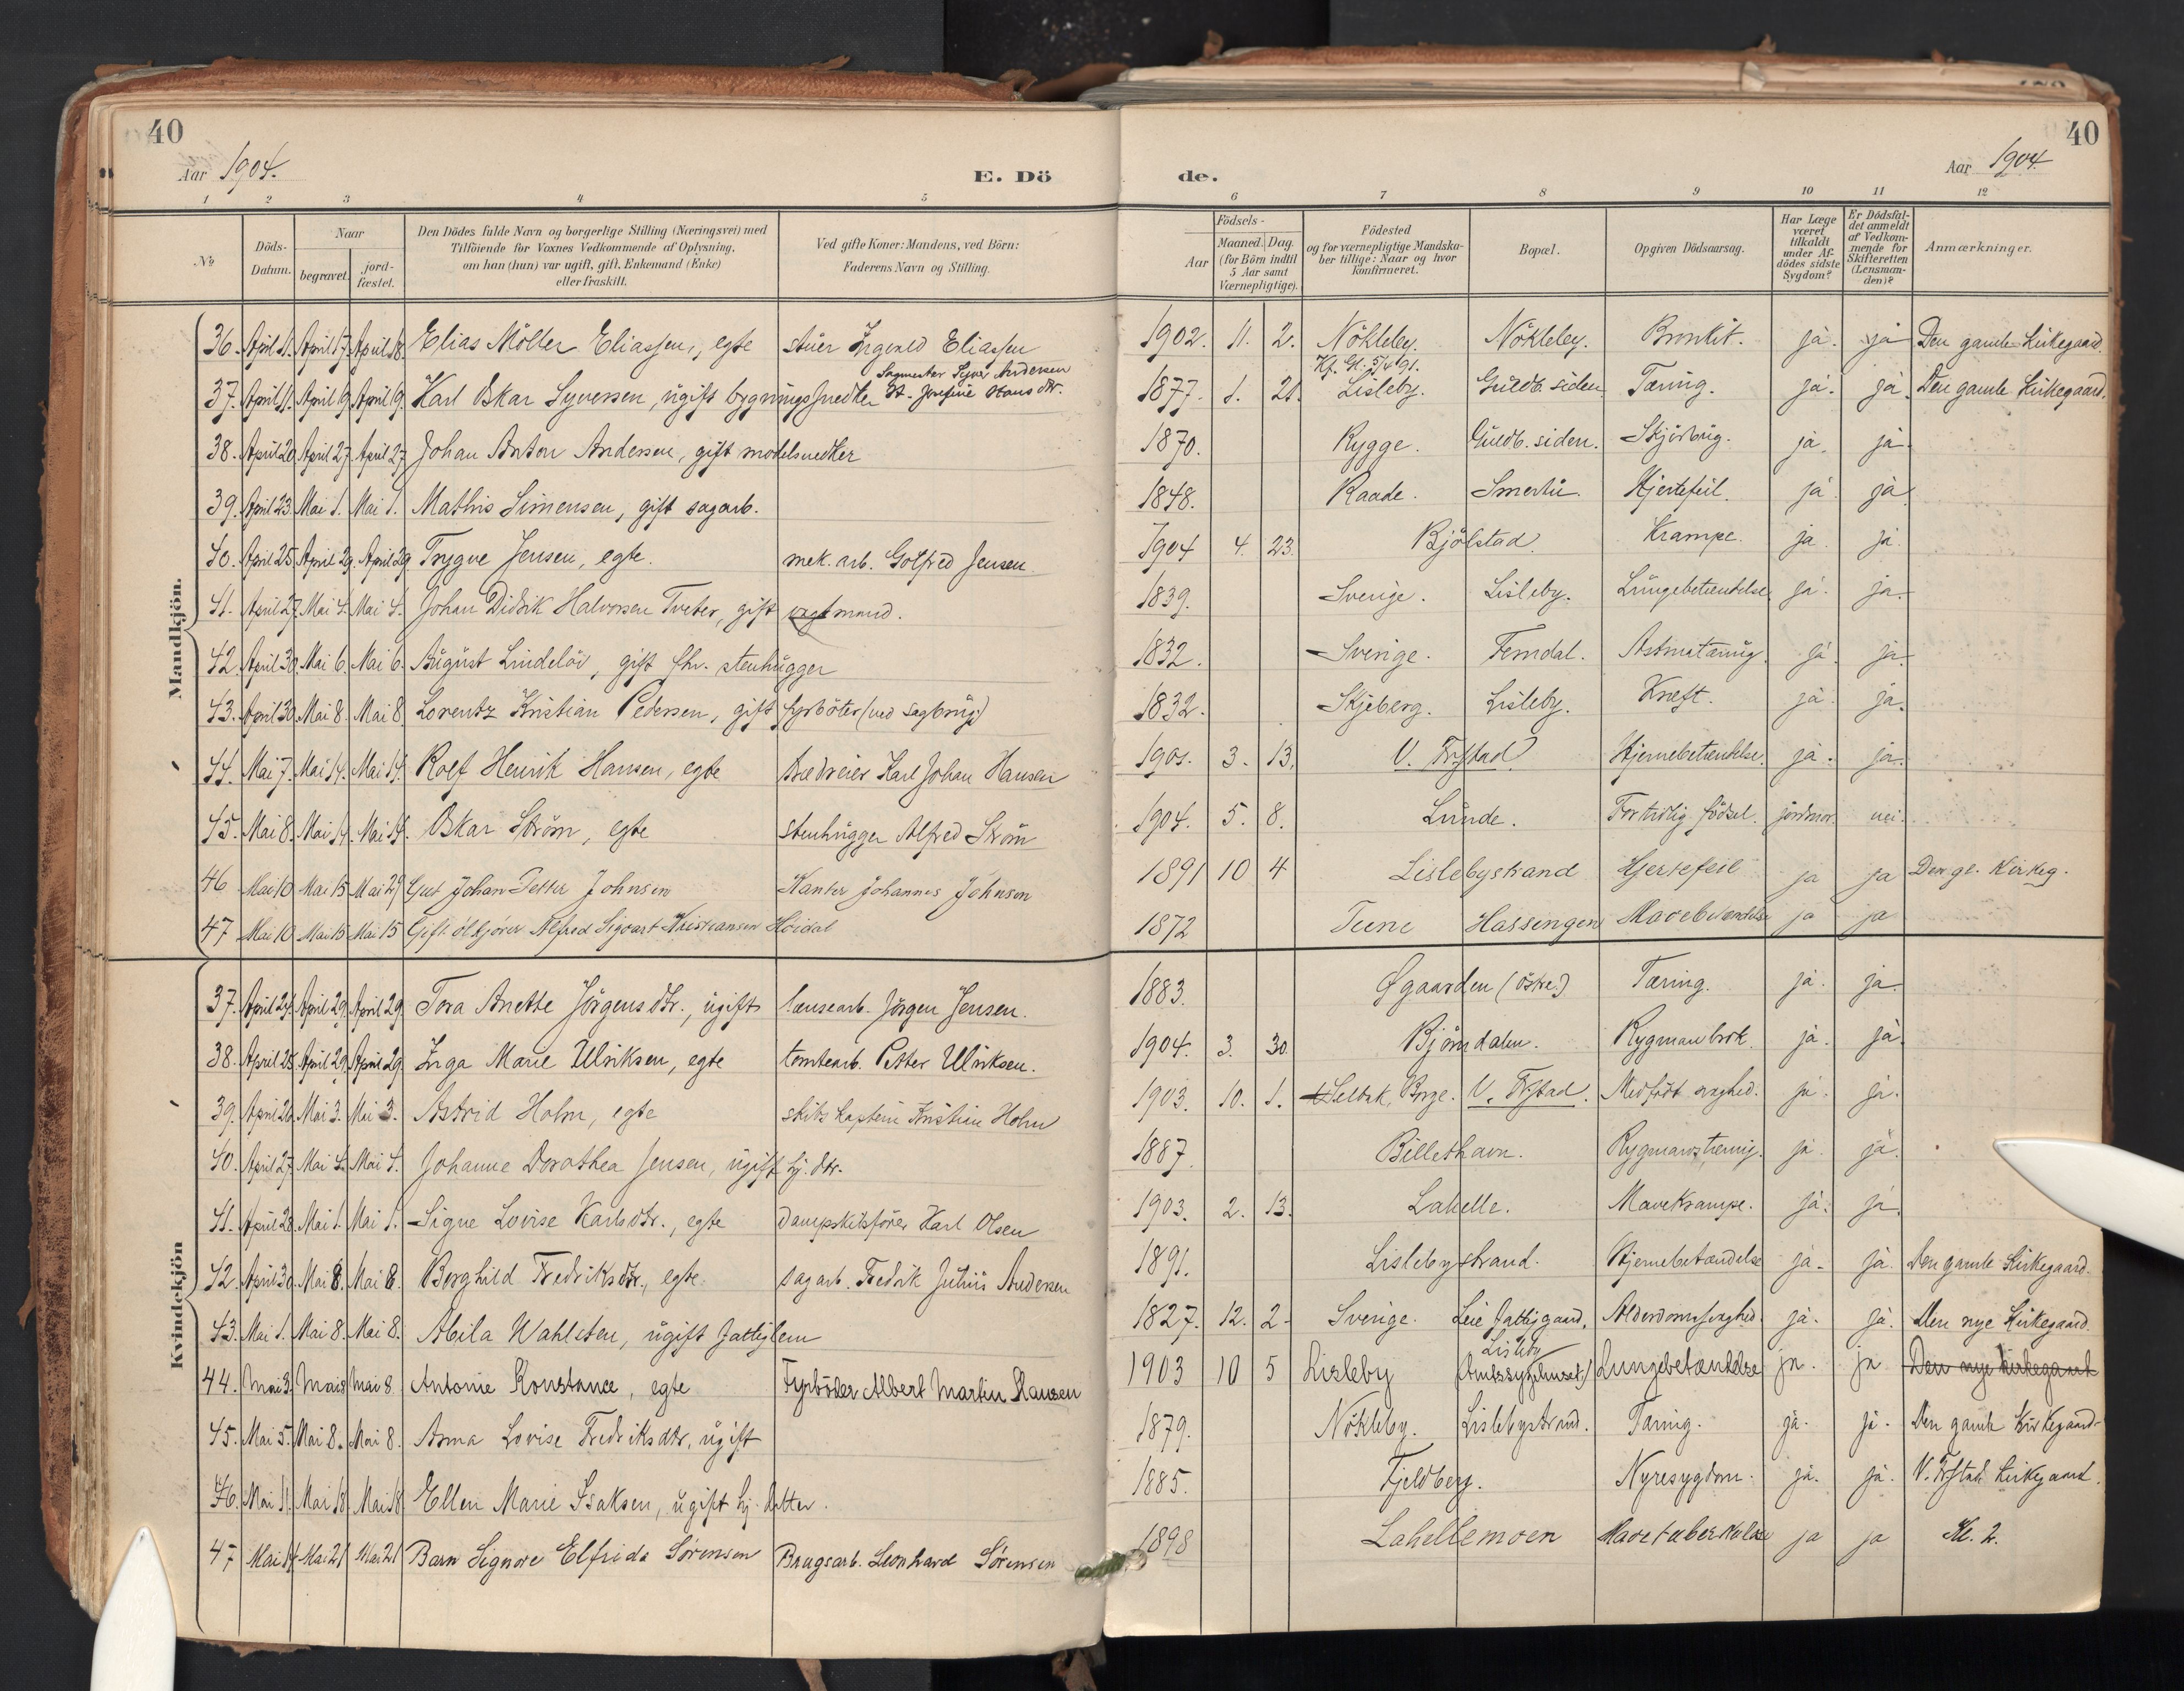 40
Aar 1904.
E. Dö
1 2 3 4 5
№
Döds-Datum.
Naar
begravet.
jord-fæstet.
Den Dödes fulde Navn og borgerlige Stilling (Næringsvei) med
Tilföiende for Voxnes Vedkommende af Oplysning,
om han (hun) var ugift, gift, Enkemand (Enke)
eller fraskilt.
Ved gifte Koner: Mandens, ved Börn:
Faderens Navn og Stilling.
Mandkjön.
36. April 11. April 17. April 18. Elias Möller Eliassen, egte stuer Ingvald Eliassen
Sagmester Syver Andersen
37. April 11. April 19. April 19. Karl Oskar Syversen, ugift bygningssnedker H. Josefine Hansdtr.
38. April 20. April 27. April 27. Johan Anton Andersen, gift modelsnedker
39. April 23. Mai 1. Mai 1. Mathis Simensen, gift sagarb.
40. April 25. April 29. April 29. Trygve Jensen, egte. mek. arb. Golfred Jensen
41. April 27. Mai 4. Mai 4. Johan Didrik Halvorsen Tveter, gift vagtmand.
42. April 30. Mai 6. Mai 6. August Lindelöv, gift fhv. stenhugger
43. April 30. Mai 8. Mai 8. Lorentz Kristian Pedersen, gift fyrböter (ved sagbrug)
44. Mai 7. Mai 14. Mai 14. Rolf Henrik Hansen, egte trædreier Karl Johan Hansen
45. Mai 8. Mai 14. Mai 14. Oskar Ström, egte stenhugger Alfred Ström
46 Mai 10 Mai 15 Mai 29 Gut Johan Petter Johnsen Kanter Johannes Johnsen
47 Mai 10 Mai 15 Mai 15 Gift ölkjörer Alfred Sigvart Kristiansen Höidal
Kvindekjön
37. April 24. April 29. April 29. Tora Anette Jörgensdtr., ugift lænsearb. Jörgen Jensen.
38. April 25. April 29. April 29. Inga Marie Ulriksen, egte tomtearb. Petter Ulriksen.
39. April 26. Mai 3. Mai 3. Astrid Holm, egte skibskaptein Kristian Holm
40. April 27. Mai 4. Mai 4. Johanne Dorothea Jensen, ugift hj. dtr.
41. April 28. Mai 1. Mai 1. Signe Lovise Karlsdtr., egte Dampskibsförer Karl Olsen
42. April 30. Mai 8. Mai 8. Borghild Fredriksdtr., egte sagarb. Fredrik Julius Andersen
43. Mai 1. Mai 8. Mai 8. Abila Wahlsten, ugift fattiglem
44. Mai 3. Mai 8 Mai 8. Antonie Konstance, egte Fyrböder Albert Martin Hansen
45. Mai 5. Mai 8. Mai 8. Anna Lovise Fredriksdtr, ugift
46. Mai 11. Mai 18. Mai 18. Ellen Marie Isaksen, ugift hj. datter.
47 Mai 14 Mai 21 Mai 21 Barn Signore Elfrida Sörensen Brugsarb. Leonhard Sörensen
40
Aar 1904.
de.
6 7 8 9 10 11 12
Födsels-
Aar
Maaned. Dag.
(for Börn indtil
5 Aar samt
Værnepligtige).
Födested
og for værnepligtige Mandska-
ber tillige: Naar og hvor
konfirmeret.
Bopæl.
Opgiven Dödsaarsag.
Har Læge
været
tilkaldt
under Af-
dödes sidste
Sygdom?
Er Dödsfal-
det anmeldt
af Vedkom-
mende for
Skifteretten
(Lensman-
den)?
Anmærkninger.
1902. 11. 2. Nökleby. Nökleby. Bronkit. ja. ja Den gamle Kirkegaard.
Kf. Gl. 5/4 91.
1877. 1. 21. Lisleby. Guldb. siden Tæring. ja. ja. Den gamle Kirkegaard.
1870. Rygge. Guldb. siden. Skjörbug. ja. ja.
1848. Raade. Smertu. Hjertefeil. ja ja.
1904 4. 23. Bjölstad. Krampe. ja. ja.
1839. Sverige. Lisleby. Lungebetændelse ja. ja.
1832. Sverige. Femdal. Astmatæring ja. ja.
1832. Skjeberg. Lisleby. Kræft. ja. ja.
1901. 3. 13. V. Frstad. Hjernebetændelse. ja. ja.
1904. 5. 8. Lunde. For tidlig födsel. jordmor. nei.
1891 10 4 Lislebystrand Hjertefeil ja ja Den gl. Kirkeg.
1872 Tune Hassengen Mavebetændelse ja ja
1883. Ögaarden (östre.) Tæring. ja. ja.
1904. 3. 30. Björndalen. Rygmarvbrok. ja. ja.
1903. 10. 1. Selbak, Borge. V. Frstad. Medfödt svaghed. ja. ja.
1887. Billethavn. Rygmarvstæring. ja. ja.
1903. 2. 13. Lahelle. Mavekrampe. ja. ja.
1891. Lislebystrand. Hjernebetændelse ja. ja. Den gamle Kirkegaard.
1827. 12. 2. Sverige. Leie Fattiggaard. Alderdomssvaghed. ja. ja. Den nye Kirkegaard.
Lisleby
1903 10 5 Lisleby (Amtssygehuset) Lungebetændelse ja. ja Den nye kirkegaard
1879. Nökleby. Lislebystrand. Tæring. ja. ja. Den gamle Kirkegaard.
1885. Fjeldberg. Nyresygdom. ja. ja. V. Frstad Kirkegaard.
1898 Lahellemoen Mavetuberkulose ja ja Kl. 2.